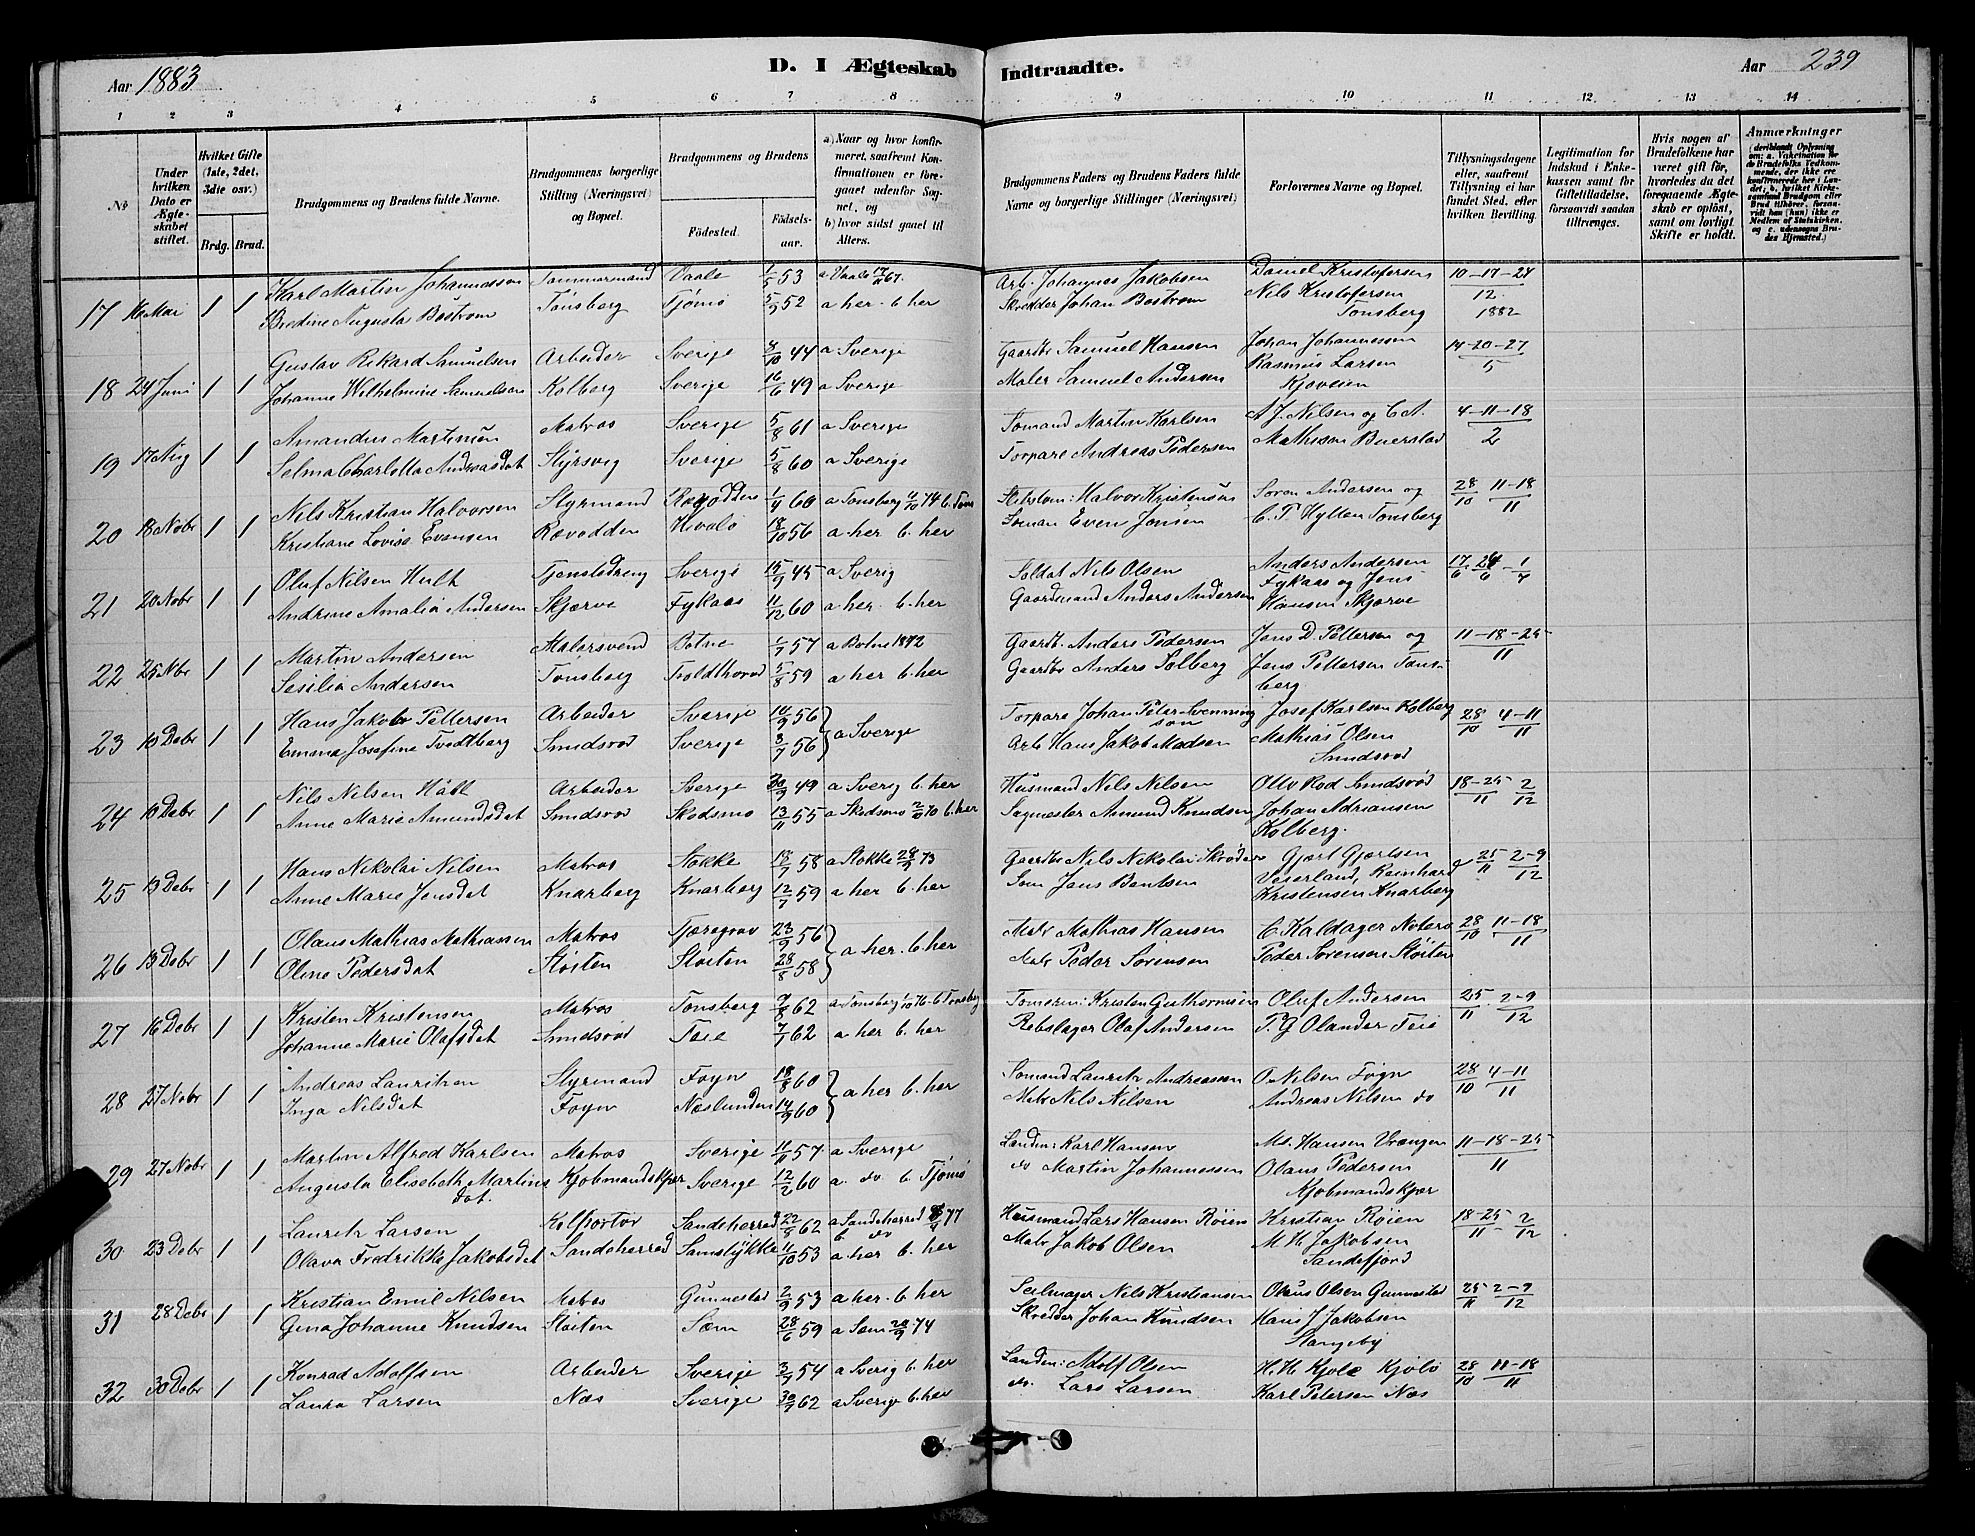 Aar 1883
D. I Ægteskab
Indtraadte.
Aar 239
1 2 3 4 5 6 7 8 9 10 11 12 13 14
No
Under hvilken Dato er Ægteskabet stiftet.
Hvilket Gifte (1ste, 2det, 3die osv.)
Brdg. Brud.
Brudgommens og Brudens fulde Navne.
Brudgommens borgerlige Stilling (Næringsvei) og Bopæl.
Brudgommens og Brudens
Fødested.
Fødselsaar.
a) Naar og hvor konfirmeret, saafremt Konfirmationen er foregaaet udenfor Sognet, og
b) hvor sidst gaaet til Alters.
Brudgommens Faders og Brudens Faders fulde Navne og borgerlige Stillinger (Næringsvei)
Forlovernes Navne og Bopæl.
Tillysningsdagene eller, saafremt Tillysning ei har fundet Sted, efter hvilken Bevilling.
Legitimation for Indskud i Enkekassen samt for Giftetilladelse, forsaavidt saadan tiltrænges.
Hvis nogen af Brudefolkene har været gift før, hvorledes da det foregaaende Ægteskab er opløst, samt om lovligt Skifte er holdt.
Anmærkninger
17 16 Mai 1 1 Karl Martin Johannessen Tømmermand Vaale 1/5 53 a Vaale
Bredine Augusta Bostrøm Tønsberg Tjømø 5/9 52 a her. b. her
Arb. Johannes Jakobsen Daniel Kristofersen 10-17-24
Skredder Johan Bostrøm Nils Kristofersen 12
Tønsberg 1882
18 24 Juni 1 1 Gustav Rikard Samuelsen Arbeider Sverige 8/10 44 a Sverige
Johanne Wilhelmine Samuelsen Kolberg Sverige 16/6 49 a Sverige
Gaardbr Samuel Hansen Johan Johannessen 14-20-27
Maler Samuel Andersen Rasmus Larsen 5
Kjøveien
19 17 Aug 1 1 Amandus Martinsen Matros Sverige 5/8 61 a Sverige
Selma Charlotta Andreasdat Styrsvig Sverige 5/8 60 a Sverige
Sømand Martin Karlsen A J. Nilsen og C A. 4-11-18
Torpare Andreas Pedersen Mathisen Buerstad 2
20 18 Nobr 1 1 Nils Kristian Halvorsen Styrmand Rævodden 1/4 60 a Tønsberg
Kristiane Lovise Evensen Rævodden Hvalø 18/10 56 a her b. her
Halvor Kristensen Søren Andersen og 28/10 11-18
Sømand Even Jensen C. P. Hytten Tønsberg 11
21 20 Nobr 1 1 Oluf Nilsen Hult Tjenstedreng Sverige 15/9 45 a Sverig
Andrine Amalia Andersen Skjerve Fykaas 11/12 60 a her. b. her
Soldat Nils Olsen Anders Andersen 17/6 24/6 - 1/7
Gaardmand Anders Andersen Fykaas og Jens
Hansen Skjerve
22 25 Nbr 1 1 Martin Andersen Malersvend Botne 1/7 57 a Botne 1872
Sesilia Andersen Tønsberg 5/8 59 a her b. her
Gaardb. Anders Pedersen Jens D. Pettersen og 11-18-25
Gaardbr Anders Solberg Jens Pettersen Tønsberg 11
23 10 Debr 1 1 Hans Jakob Pettersen Arbeider Sverige 10/9 56
Emma Josefine Tvedtberg Smidsrød Sverige 3/7 56 a Sverige
Torpare Johan Peter Svenningson Josef Karlsen Kolberg 28/10 4-11
Arb Hans Jakob Madsen Mathias Olsen 11
Smidsrød
24 10 Debr 1 1 Nils Nilsen Hått Arbeider Sverige 30/9 49 a Sverig b. her
Anne Marie Amundsdat Smidsrød Skedsmo 13/11 55 a Skedsmo 2/10 70 b. her
Husmand Nils Nilsen Otto Rød Smidsrød 18-25 2
Sagmester Amund Knudsen Johan Adriansen 11 12
Kolberg.
25 13 Debr 1 1 Hans Nikolai Nilsen Matros Stokke 18/7 58 a Stokke 28/9 73
Anne Marie Jensdat Knarberg Knarberg 12/7 59 a her b. her
Gaardbr Nils Nikolai Gjert Gjertsen 25/11 2-9
Søm Jens Bentsen Veierland, Reinhard 12
Kristensen Knarberg
26 13 Debr 1 1 Olaus Mathias Mathiassen Matros Tjæregrav 23/9 56
Oline Pedersdat Støiten Støiten 28/8 58 a her. b. her
Matr Mathias Hansen C Kaldager Nøterø 28/10 11-18
Matr Peder Sørensen Peder Sørensen Støiten 11
27 16 Debr 1 1 Kristen Kristensen Matros Tønsberg 9/8 62 a Tønsberg 1/10 76. b Tønsberg
Johanne Marie Olafsdat Smidsrød Teie 7/7 62 a her b. her
Tømerm: Kristen Guthormsen Oluf Andersen 25/11 2-9
Rebslager Olaf Andersen P. G Olander Teie 12
28 27 Nobr 1 1 Andreas Lauritzen Styrmand Føyn 18/8 60
Inga Nilsdat Føyn Næslunden 14/9 60 a her b. her
Sømand Lauritz Andreassen O Nilsen Føyn 28/10 4-11
Matr Nils Nilsen Andreas Nilsen do 11
29 27 Nobr 1 1 Martin Alfred Karlsen Matros Sverige 11/11 57 a Sverige
Augusta Elisabeth Martinsdat. Kjøbmandskjær Sverige 12/2 60 a. do b. Tjømø
Landm: Karl Hansen Md. Hansen Vrengen 11-18-25
do Martin Johannessen Olaus Pedersen 11
Kjøbmandskjær
30 23 Debr 1 1 Lauritz Larsen Kolportør Sandeherred 22/8 62 a Sandeherred 77
b do
Olava Fredrikke Jakobsdat Sandeherred 11/10 53 a her b. her
Husmand Lars Hansen Røien Kristian Røien 18-25 - 2
Matr Jakob Olsen M. H. Jakobsen 11 - 12
Sandefjord
31 28 Debr 1 1 Kristian Emil Nilsen Matros Gunnestad 2/9 53 a her. b. her
Gina Johanne Knudsen Støiten Sæm 28/6 59 a Sæm 20/9 74
Seilmager Nils Kristiansen Olaus Olsen Gunnestad 25/11 2-9
Skredder Johan Knudsen Hans J Jakobsen 12
Stangeby
32 30 Debr 1 1 Konrad Adolfsen Arbeider Sverige 3/7 54 a Sverig b. her
Laura Larsen Næs Sverige 30/9 62 a Sverige b. her
Landm: Adolf Olsen H. H. Kjølø Kjølø 28/10 11-18
do. Lars Larsen Karl Petersen Næs 11